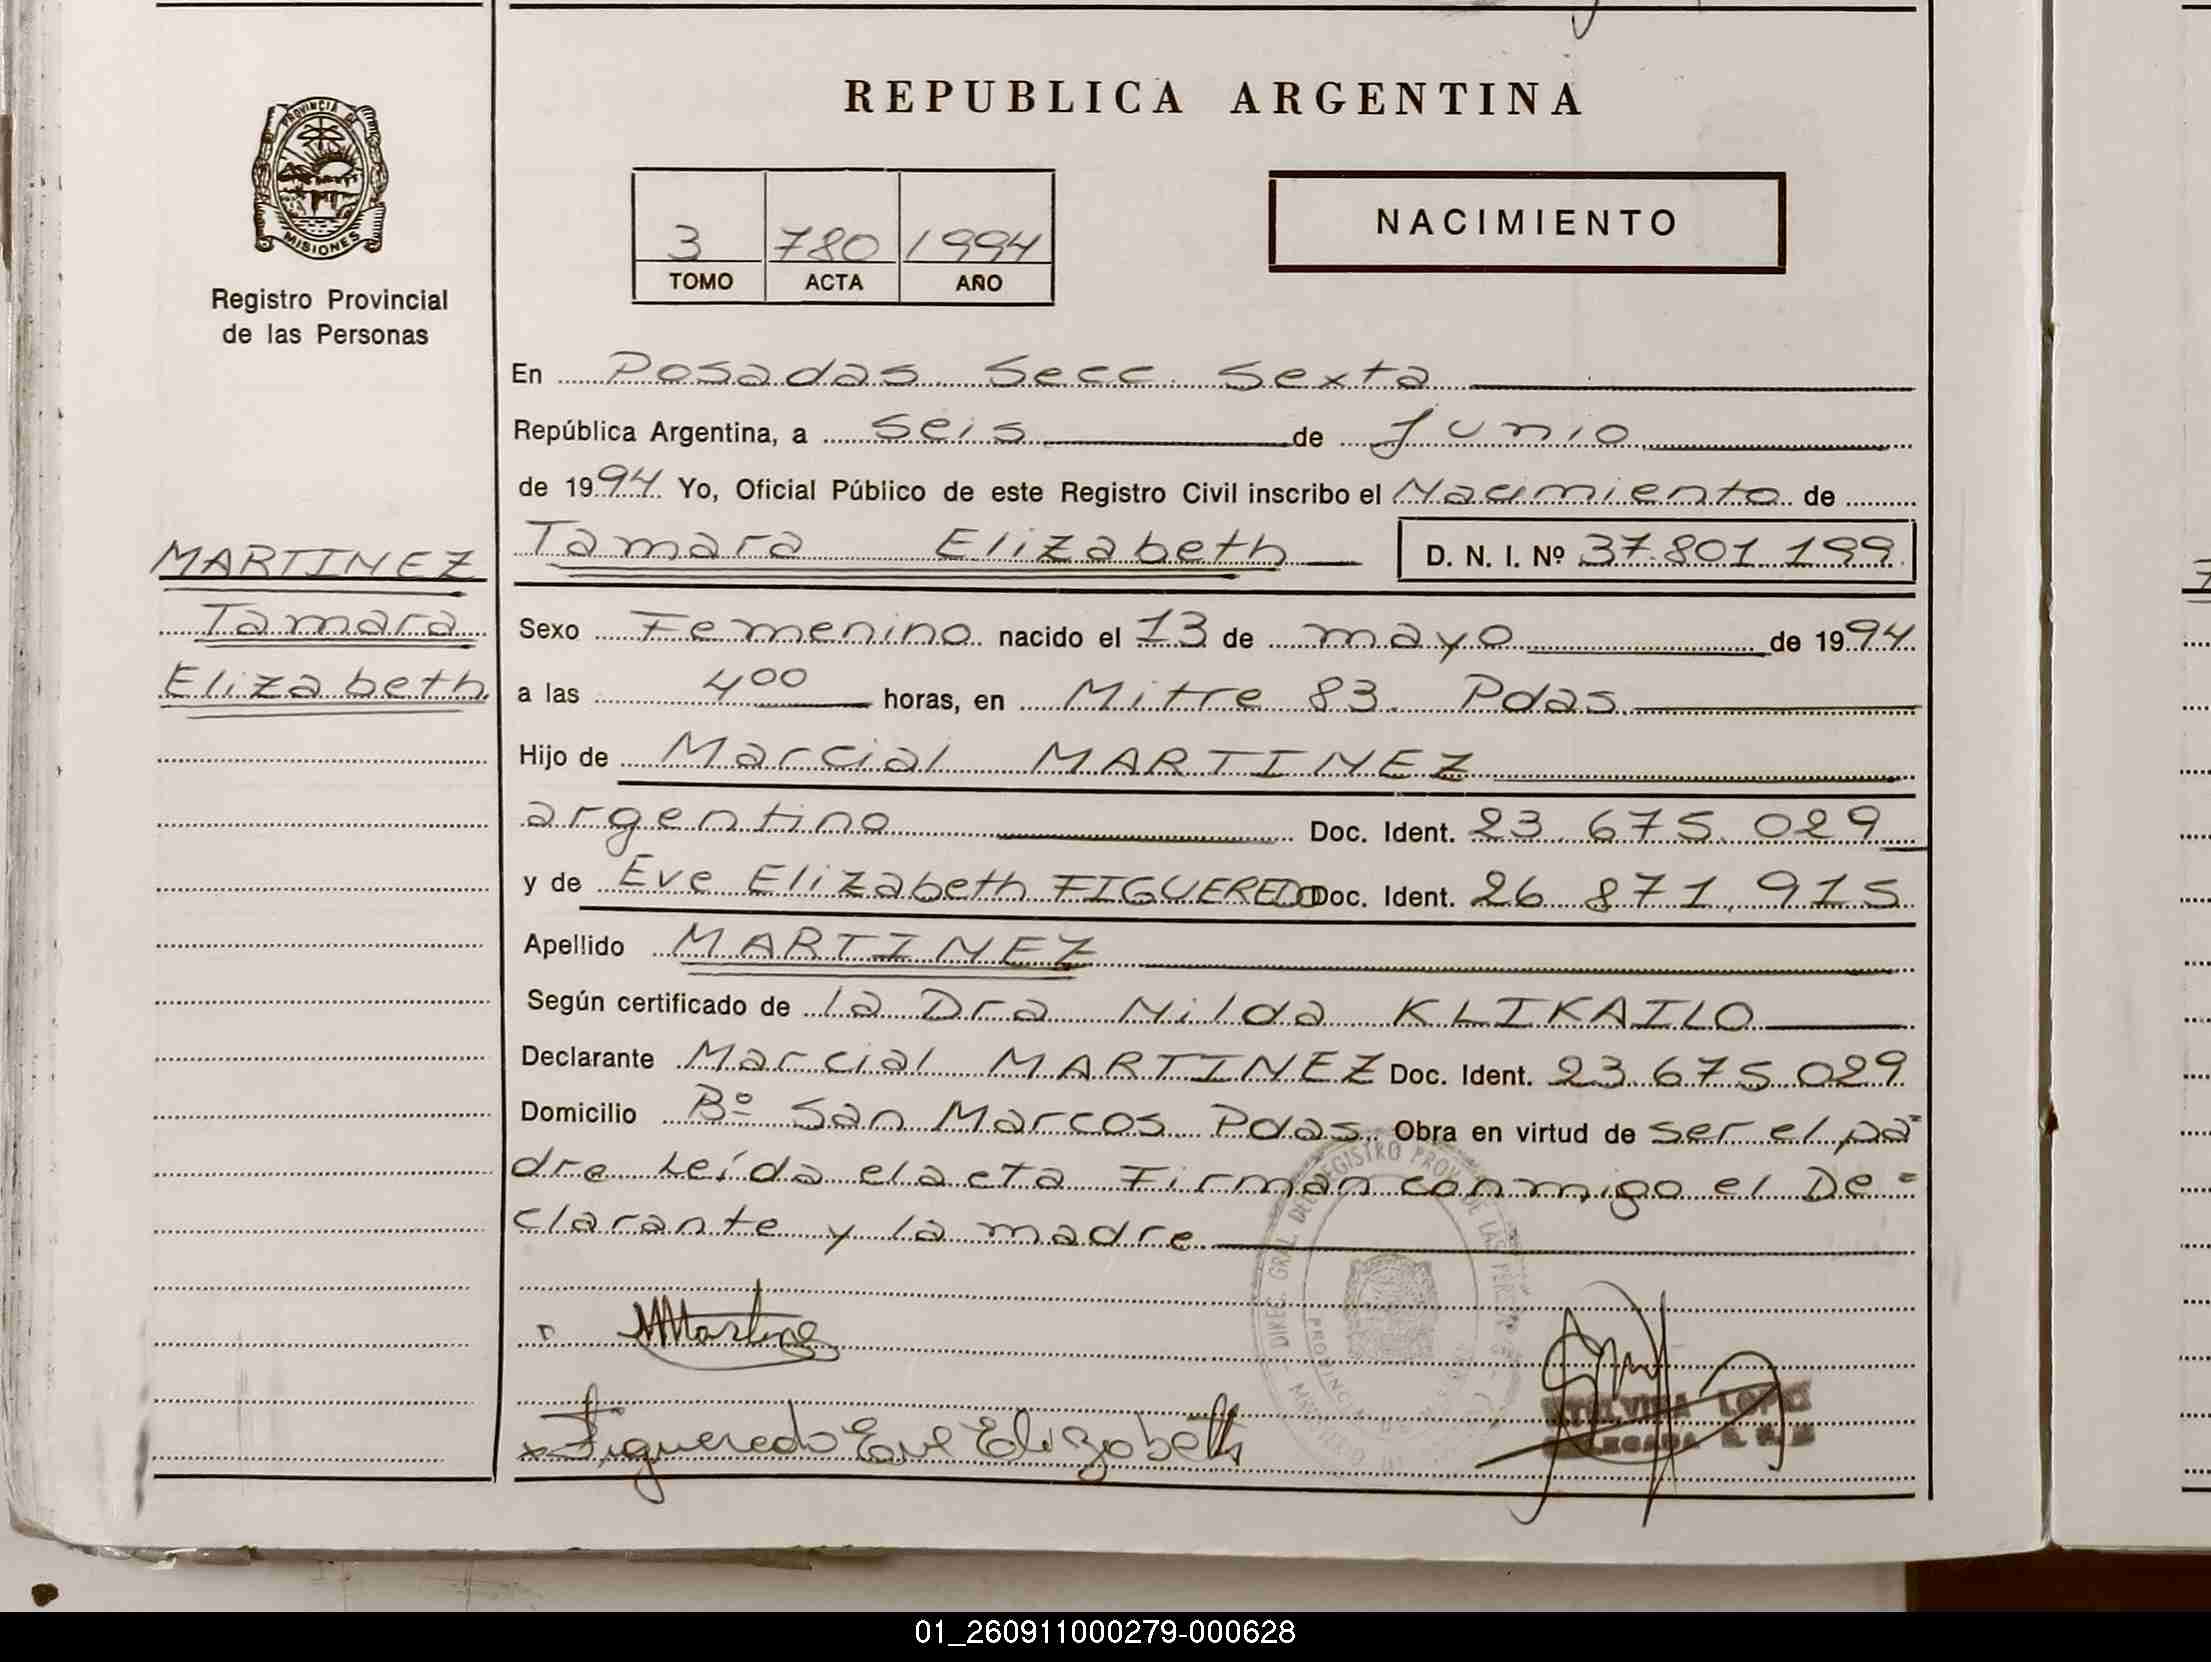 REPUBLICA ARGENTINA
PROVINCIA DE
MISIONES
Registro Provincial
de las Personas
3 780 1994
TOMO ACTA AÑO
NACIMIENTO
En Posadas Secc. Sexta
República Argentina, a seis de Junio
de 1994 Yo, Oficial Público de este Registro Civil inscribo el Nacimiento de
Tamara Elizabeth D. N. I. Nº 37.801.199
MARTINEZ
Tamara
Elizabeth
Sexo Femenino nacido el 13 de mayo de 1994
a las 4⁰⁰ horas, en Mitre 83. Pdas
Hijo de Marcial MARTINEZ
argentino Doc. Ident. 23.675.029
y de Eve Elizabeth FIGUEREDO Doc. Ident. 26 871.915
Apellido MARTINEZ
Según certificado de la Dra Nilda KLIKAILO
Declarante Marcial MARTINEZ Doc. Ident. 23.675.029
Domicilio Bº San Marcos Pdas. Obra en virtud de ser el pa=
dre Leída el acta Firman conmigo el De=
clarante y la madre
MMartinez
x Figueredo Eve Elizabeth
LOPEZ
01_260911000279-000628